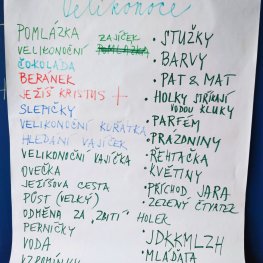 Velikonoce
POMLÁZKA
ZAJÍČEK
VELIKONOČNÍ POMLÁZKA
ČOKOLÁDA
BERÁNEK
JEŽÍŠ KRISTUS
SLEPIČKY
VELIKONOČNÍ KUŘÁTKA
HLEDÁNÍ VAJÍČEK
VELIKONOČNÍ VAJÍČKA
OVEČKA
JEŽÍŠOVA CESTA
PŮST (VELKÝ)
ODMĚNA ZA „ZBITÍ“ HOLEK
PERNÍČKY
VODA
VZPOMÍNKY
• STUŽKY
• BARVY
• PAT & MAT
• HOLKY STŘÍKAJÍ
VODOU KLUKY
• PARFÉM
• PRÁZDNINY
• ŘEHTAČKA
• KVĚTINY
• PŘÍCHOD JARA
• ZELENÝ ČTVRTEK
• JDKKMLZH
• MLÁĎATA